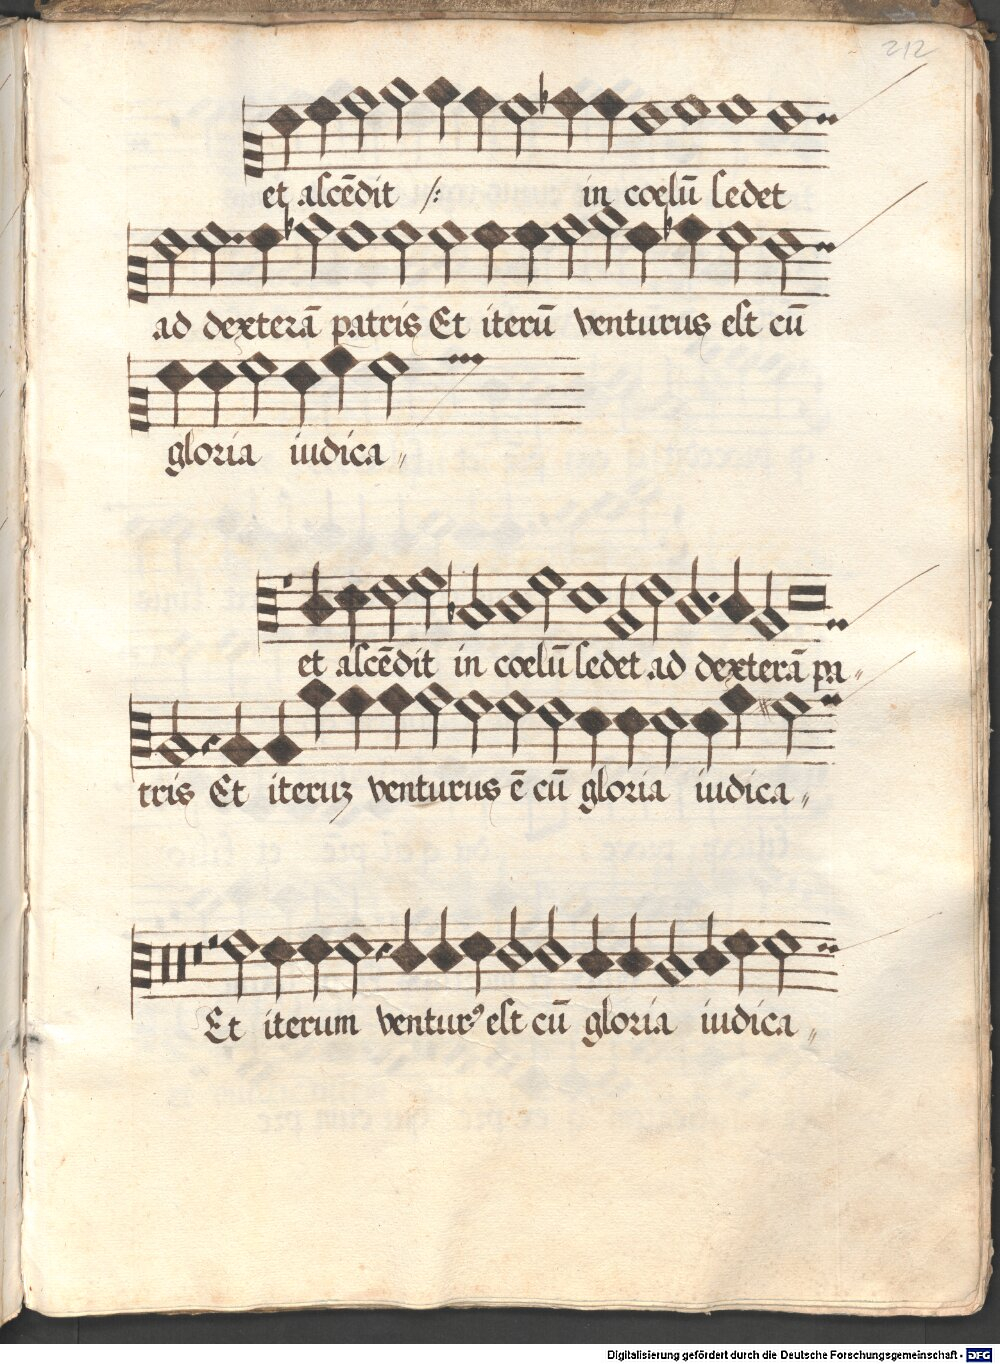 212
et ascēdit /: in coelū sedet
ad dexterā patris Et iterū venturus est cū
gloria iudica〃
et ascēdit in coelū sedet ad dexterā pa〃
tris Et iteruʒ venturus ē cū gloria iudica〃
Et iterum ventur⁹ est cū gloria iudica〃
Digitalisierung gefördert durch die Deutsche Forschungsgemeinschaft - DFG